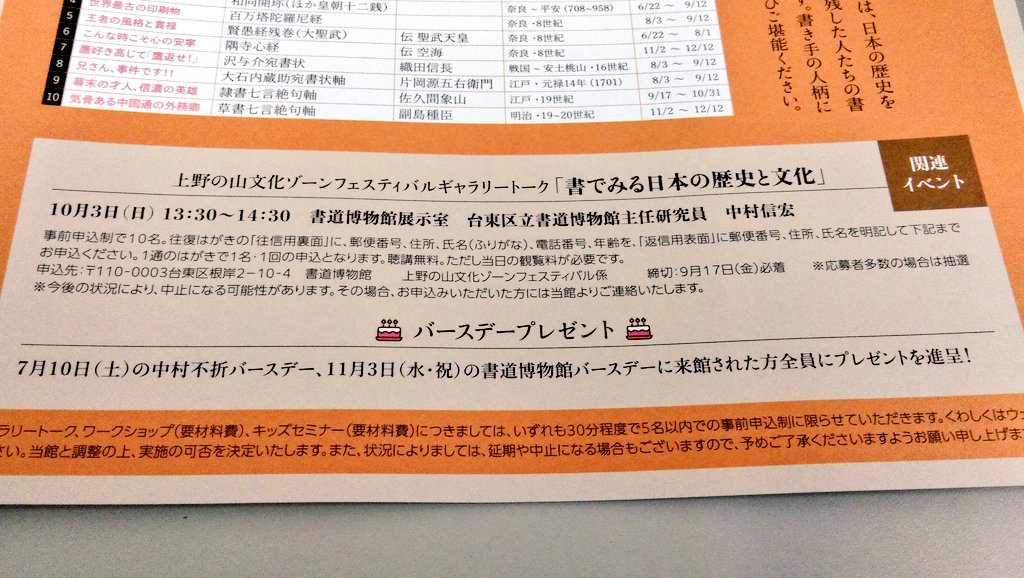 は、日本の歴史を
残した人たちの書
す。書き手の人柄に
ひご堪能ください。
4 世界最古の印刷物 和同開珎(ほか皇朝十二銭) 奈良~平安(708~958) 6/22 ~ 9/12
5 王者の風格と貫禄 百万塔陀羅尼経 奈良・8世紀 8/3 ~ 9/12
6 こんな時こそ心の安寧 賢愚経残巻(大聖武) 伝 聖武天皇 奈良・8世紀 6/22 ~ 8/1
7 鷹好き高じて「鷹返せ!」 隅寺心経 伝 空海 奈良・8世紀 11/2 ~ 12/12
8 兄さん、事件です!! 沢与介宛書状 織田信長 戦国~安土桃山・16世紀 8/3 ~ 9/12
9 幕末の才人、信濃の英雄 大石内蔵助宛書状軸 片岡源五右衛門 江戸・元禄14年(1701) 8/3 ~ 9/12
10 気骨ある中国通の外務卿 隷書七言絶句軸 佐久間象山 江戸・19世紀 9/17 ~ 10/31
草書七言絶句軸 副島種臣 明治・19~20世紀 11/2 ~ 12/12
関連
イベント
上野の山文化ゾーンフェスティバルギャラリートーク「書でみる日本の歴史と文化」
10月3日(日) 13:30~14:30 書道博物館展示室 台東区立書道博物館主任研究員 中村信宏
事前申込制で10名。往復はがきの「往信用裏面」に、郵便番号、住所、氏名(ふりがな)、電話番号、年齢を、「返信用表面」に郵便番号、住所、氏名を明記して下記まで
お申込ください。1通のはがきで1名・1回の申込となります。聴講無料。ただし当日の観覧料が必要です。
申込先:〒110-0003台東区根岸2-10-4 書道博物館 上野の山文化ゾーンフェスティバル係 締切:9月17日(金)必着 ※応募者多数の場合は抽選
※今後の状況により、中止になる可能性があります。その場合、お申込みいただいた方には当館よりご連絡いたします。
バースデープレゼント
7月10日(土)の中村不折バースデー、11月3日(水・祝)の書道博物館バースデーに来館された方全員にプレゼントを進呈!
ラリートーク、ワークショップ(要材料費)、キッズセミナー(要材料費)につきましては、いずれも30分程度で5名以内での事前申込制に限らせていただきます。くわしくはウェ
さい。当館と調整の上、実施の可否を決定いたします。また、状況によりましては、延期や中止になる場合もございますので、予めご了承くださいますようお願い申し上げま